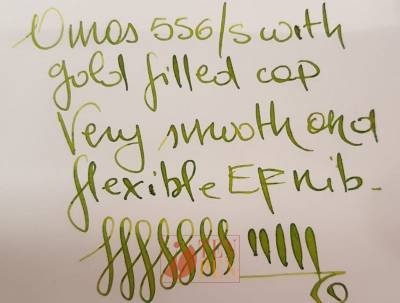 Omas 556/s with
gold filled cap
Very smooth and
flexible EF nib-